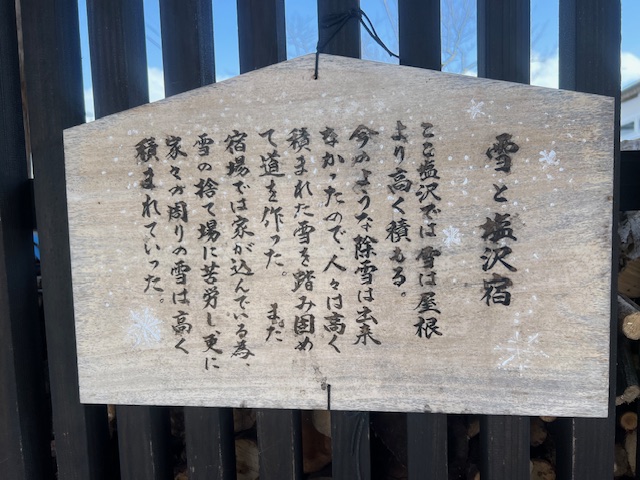 雪と塩沢宿
ここ塩沢では雪は屋根
より高く積もる。
今のような除雪は出来
なかったので、人々は高く
積まれた雪を踏み固め
て道を作った。また
宿場では家が込んでいる為、
雪の捨て場に苦労し、更に
家々の周りの雪は高く
積まれていった。